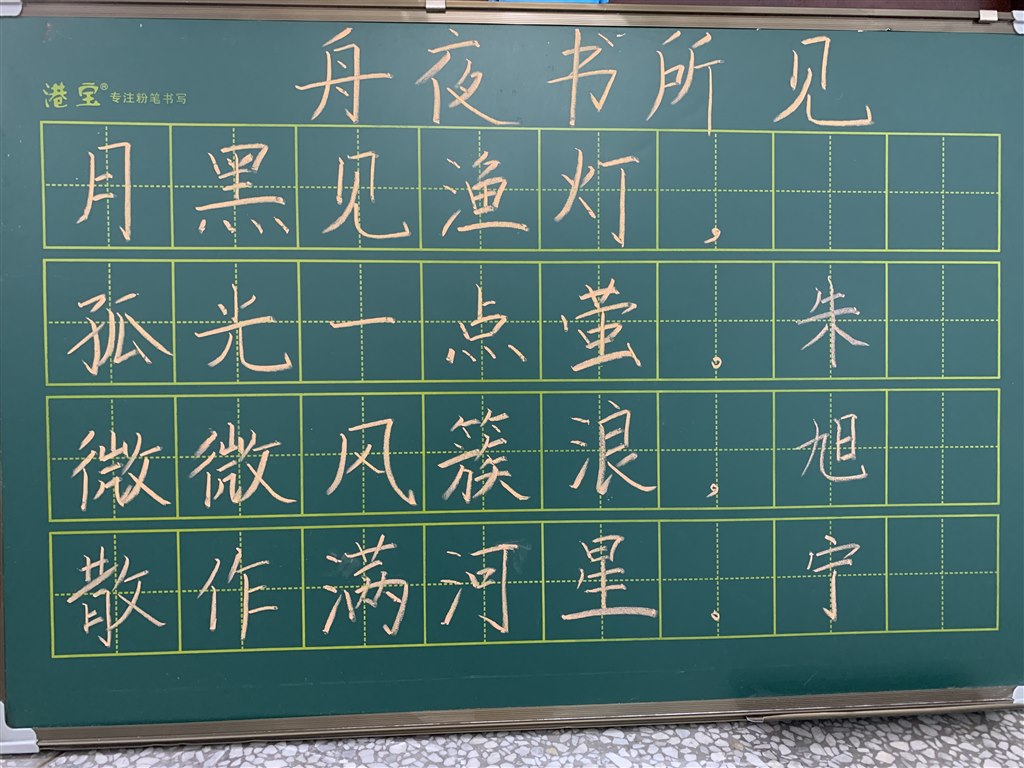 舟夜书所见
港宝® 专注粉笔书写
月黑见渔灯，
孤光一点萤。 朱
微微风簇浪， 旭
散作满河星。 宁